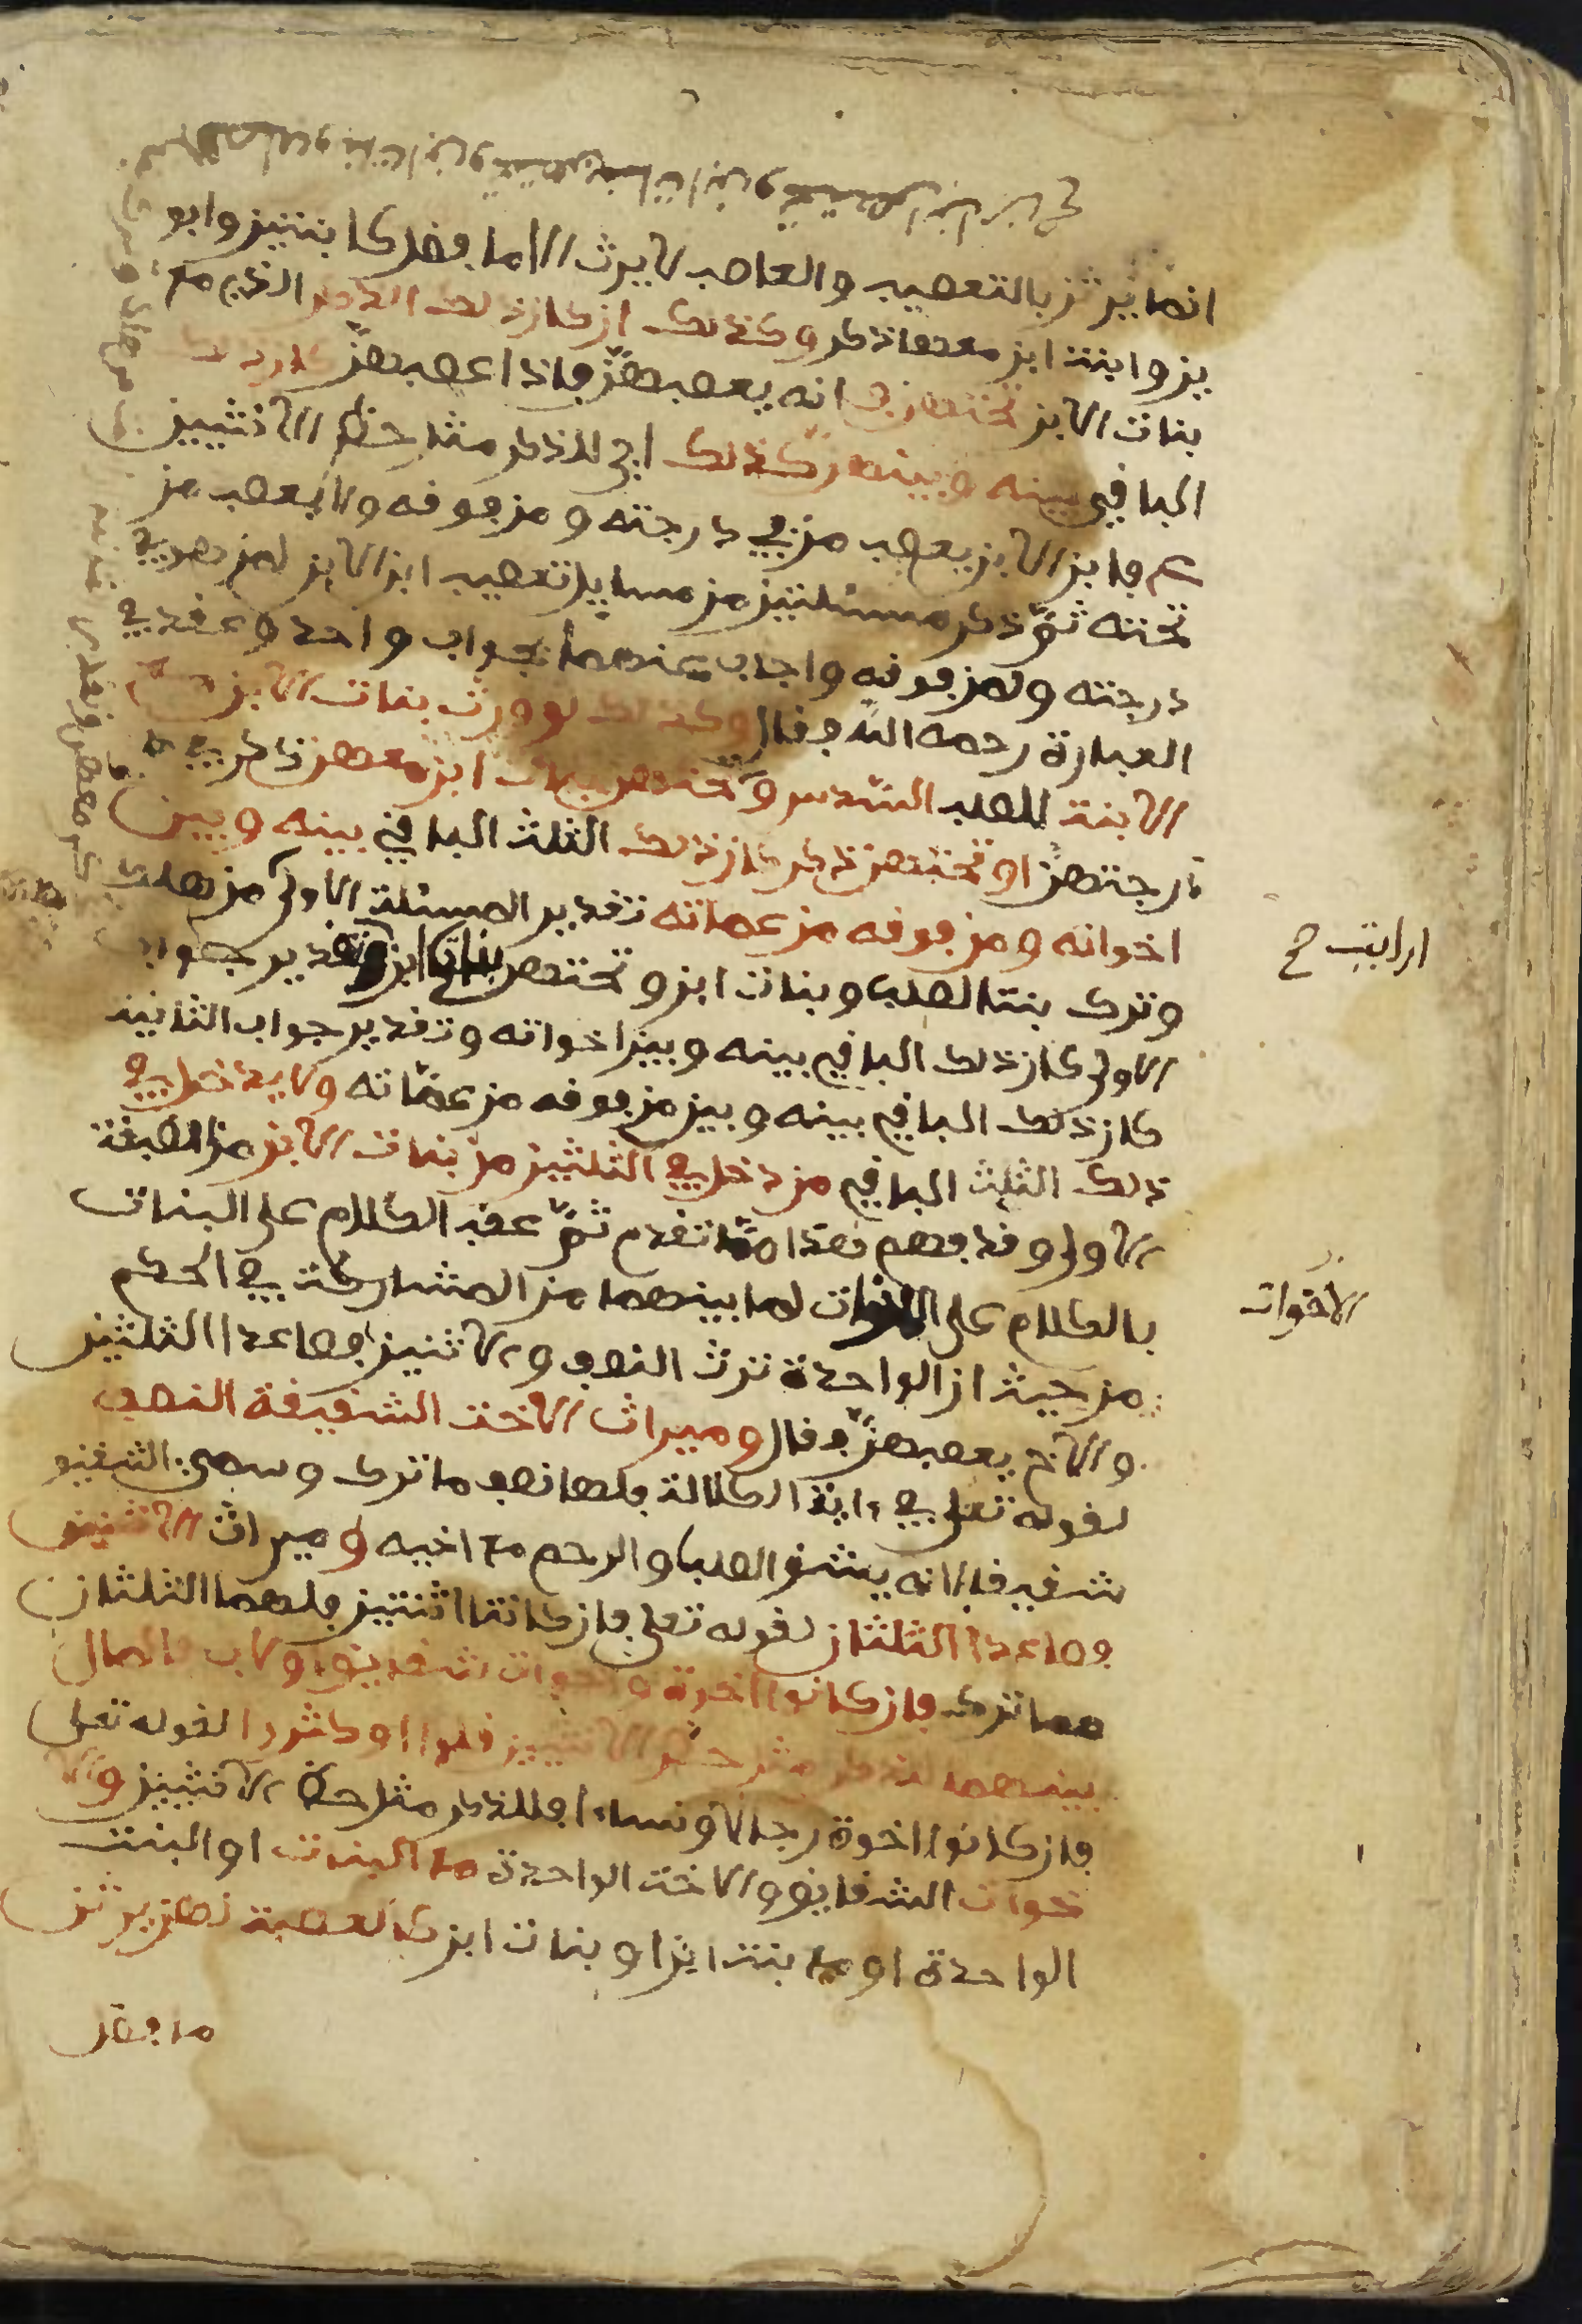 انما يرثن بالتعصيب والعاصب لا يرث الا ما فضل كابنتين وابو
ين وابنت ابن معها ذكر وكذلك ان كان ذلك الذكر الذي مع
بنات الابن تحتهن انه يعصبهن فاذا عصبهن كان ذلك
الباقي بينه وبينهن كذلك اي للذكر مثل حظ الانثيين
فابن الابن يعصب من في درجته ومن فوقه ولا يعصب من
تحته ثم ذكر مسئلتين من مسايل تعصيب ابن الابن لمن هو في
درجته ولمن فوقه واجاب عنهما بجواب واحد وعقد في
العبارة رحمه الله فقال وكذلك لو ورث بنات الابن مع
الابنة للصلب السدس وتحتهن بنات ابن معهن ذكر
درجتهن او تحتهن ذكر كان ذلك الثلث الباقي بينه وبين
اخواته ومن فوقه من عماته تقدير المسئلة الاولى من هلك
وترك بنتا لصلب وبنات ابن وتحتهن بنات ابن وتقدير جواب
الاولى كان ذلك الباقي بينه وبين اخواته وتقدير جواب الثانية
كان ذلك الباقي بينه وبين من فوقه من عماته ولا يدخل في
ذلك الثلث الباقي من دخل في الثلثين من بنات الابن من الطبقة
الاولى وقد فهم هذا مما تقدم ثم عقب الكلام على البنات
بالكلام على الاخوات لما بينهما من المشاركة في الحكم
من حيث ان الواحدة ترث النصف والاثنين فصاعدا الثلثين
والاخ يعصبهن فقال وميراث الاخت الشقيقة النصف
لقوله تعلى في ءاية الكلالة فلها نصف ما ترك وسمي الشقيق
شقيقا لانه يشق الصلب والرحم مع اخيه وميراث الاثنتين
فصاعدا الثلثان لقوله تعلى فان كانتا اثنتين فلهما الثلثان
مما ترك فان كانوا اخوة واخوات شقايق او لاب فالمال
بينهما للذكر مثل حظ الانثيين قلوا او كثروا لقوله تعلى
فان كانوا اخوة رجالا ونساء فللذكر مثل حظ الانثيين والا
خوات الشقايق والاخت الواحدة مع البنات او البنت
الواحدة او مع بنت ابن او بنات ابن كالعصبة لهن يرثن
ما فضل
ارايت ح
الاخوات